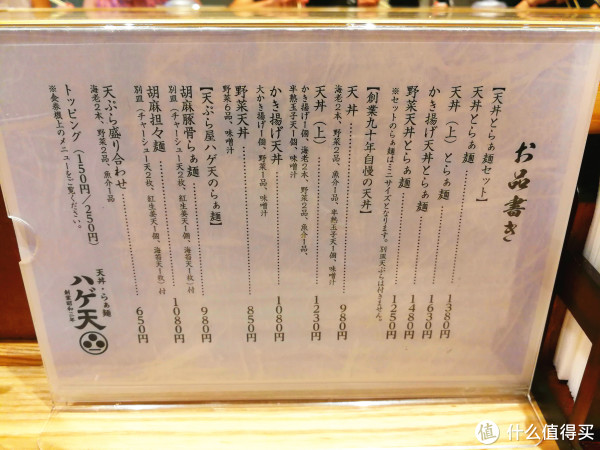 お品書き
【天丼とらぁ麺セット】
天丼とらぁ麺 1380円
天丼（上）とらぁ麺 1630円
かき揚げ天丼とらぁ麺 1480円
野菜天丼とらぁ麺 1250円
※セットのらぁ麺はミニサイズとなります。別皿天ぷらは付きません。
【創業九十年自慢の天丼】
天丼 980円
海老2本、野菜2品、魚介1品、半熟玉子天1個、味噌汁
天丼（上） 1230円
かき揚げ1個、海老2本、野菜2品、魚介1品、
半熟玉子天1個、味噌汁
かき揚げ天丼 1080円
大かき揚げ1個、野菜1品、味噌汁
野菜天丼 850円
野菜6品、味噌汁
【天ぷら屋ハゲ天のらぁ麺】
胡麻豚骨らぁ麺 980円
別皿（チャーシュー天2枚、紅生姜天1個、海苔天1枚）付
胡麻担々麺 1080円
別皿（チャーシュー天2枚、紅生姜天1個、海苔天1枚）付
天ぷら盛り合わせ 650円
海老2本、野菜2品、魚介1品
トッピング（150円/250円）
※食券機上のメニューをご覧ください。
天丼・らぁ麺
ハゲ天
創業昭和三年
值 什么值得买